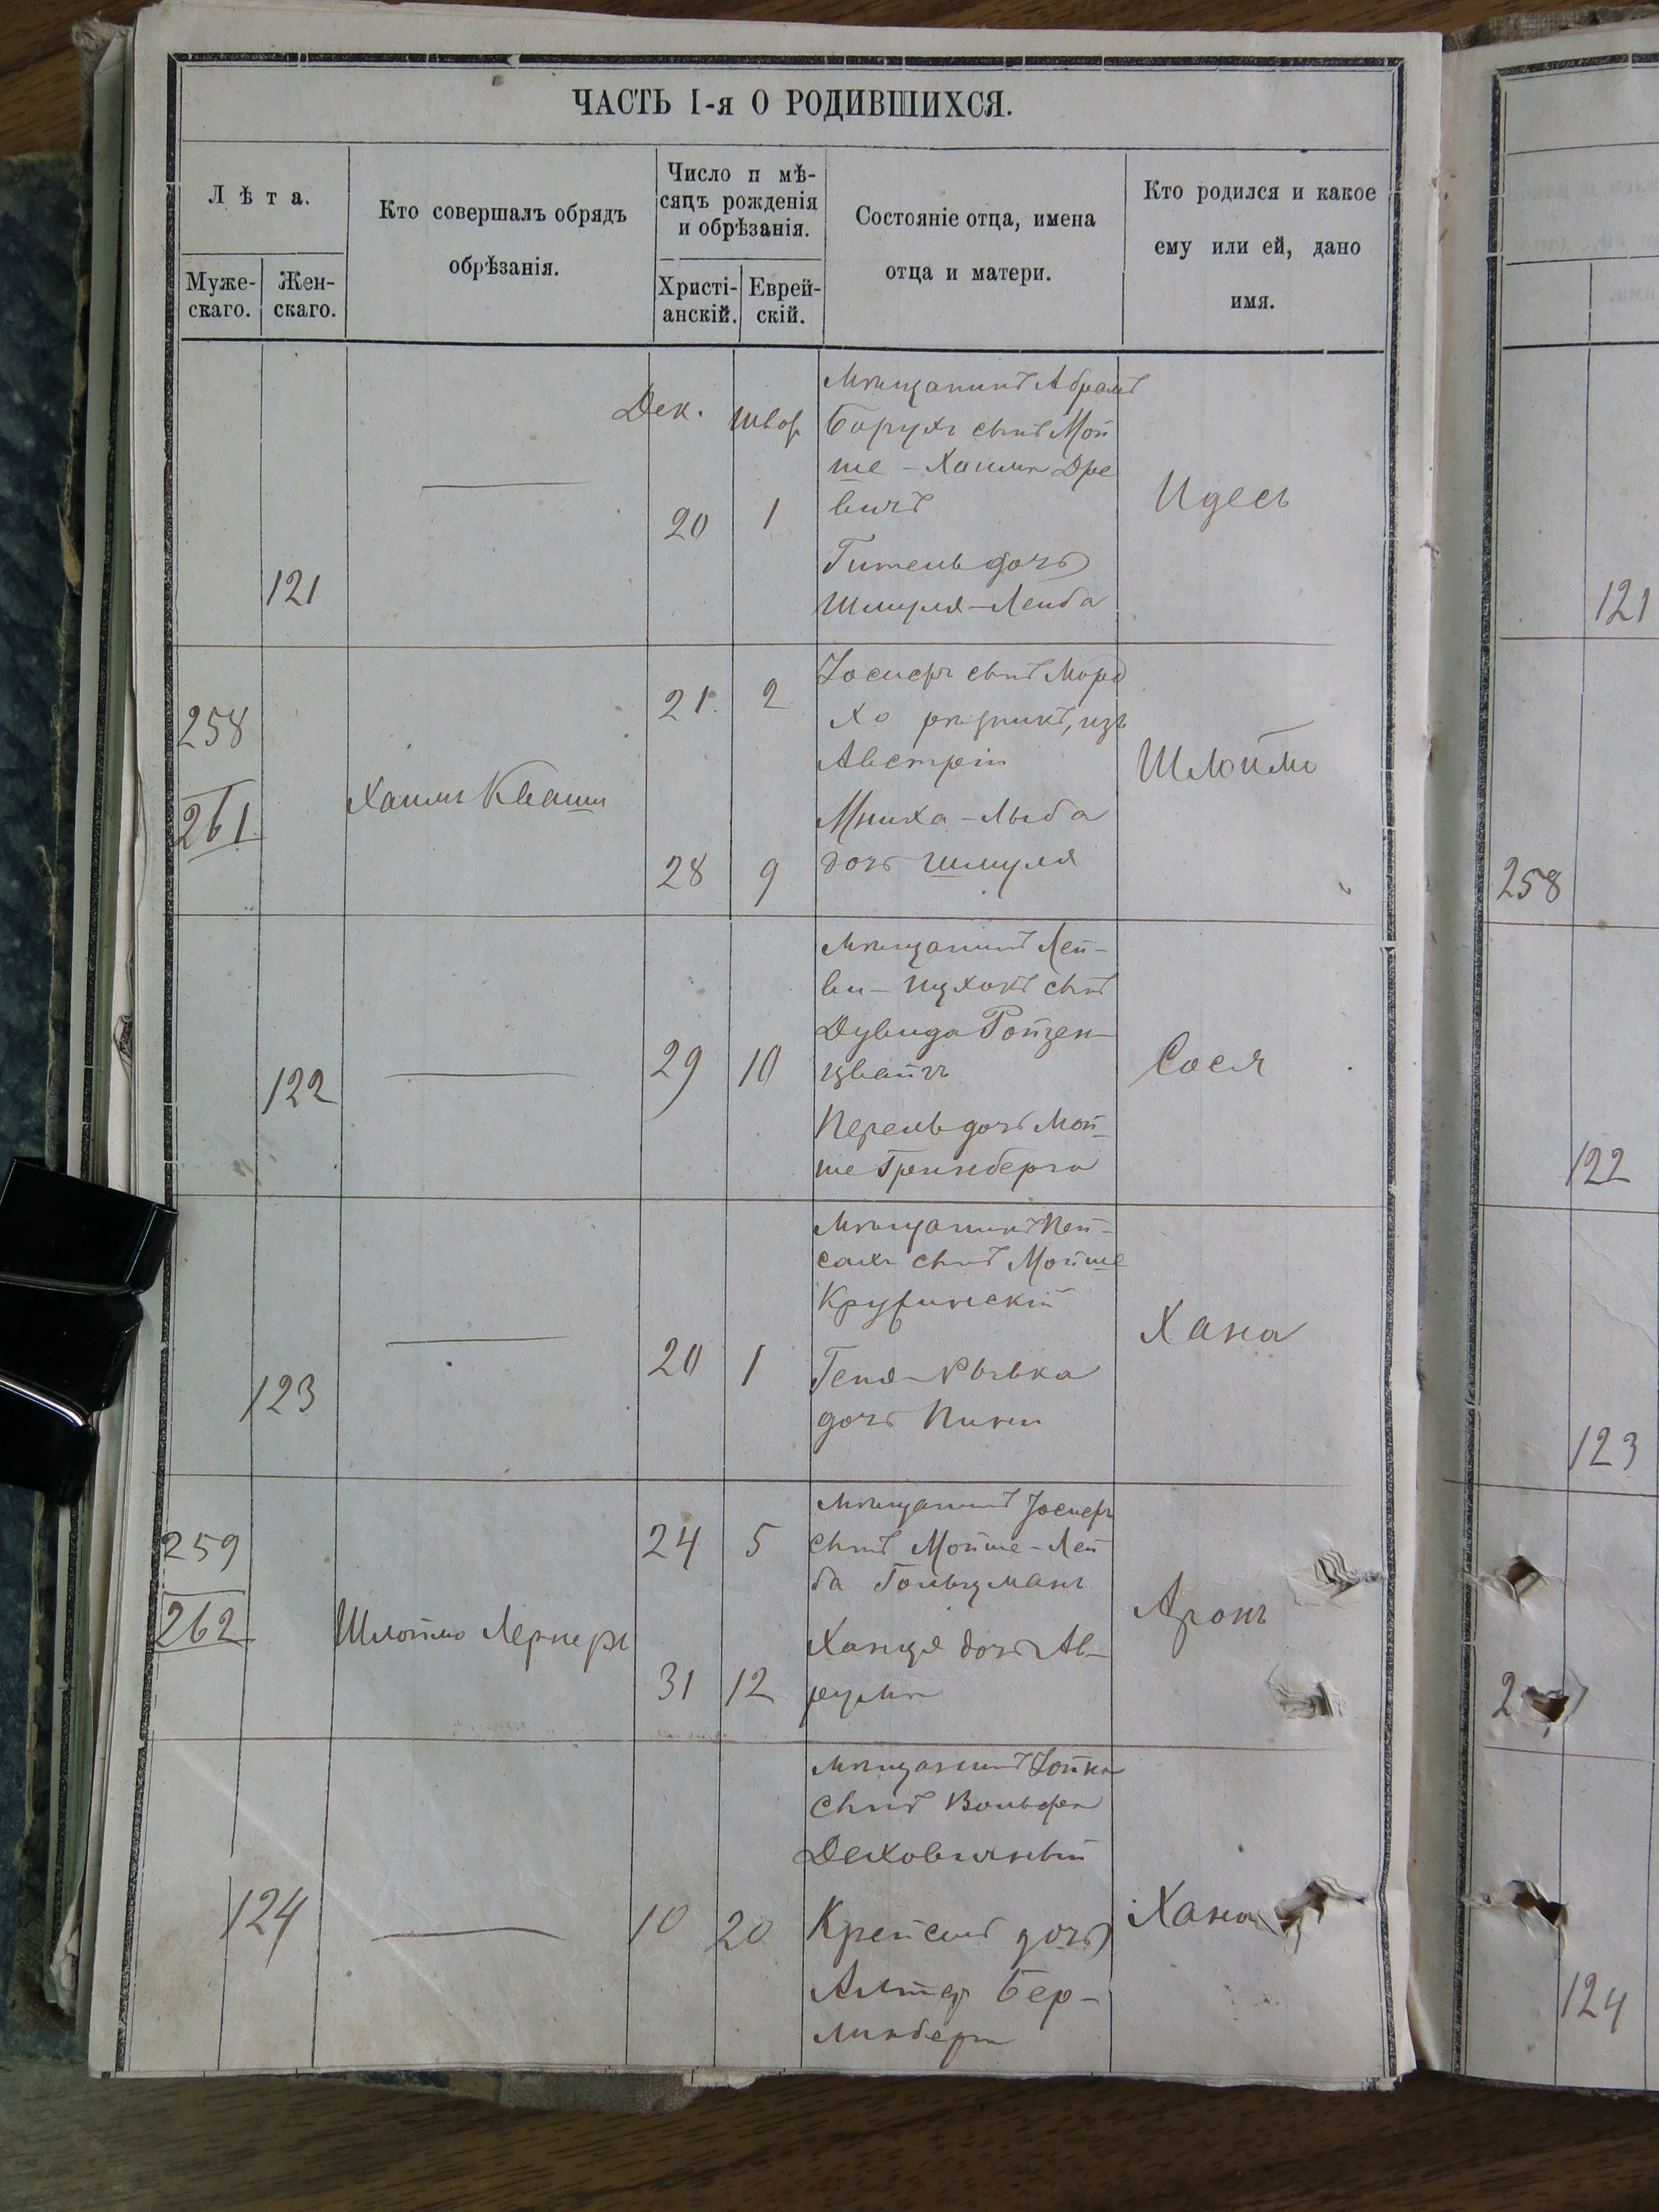 ЧАСТЬ I-я О РОДИВШИХСЯ.
Лѣта.
Муже-
скаго.
Жен-
скаго.
Кто совершалъ обрядъ
обрѣзанія.
Число и мѣ-
сяцъ рожденія
и обрѣзанія.
Христі-
анскій.
Еврей-
скій.
Состояніе отца, имена
отца и матери.
Кто родился и какое
ему или ей, дано
имя.
121
Дек.
20
1
Мѣщанинъ Абрамъ
Борухъ сынъ Мой
ше - Хаима Дре
вичъ
Гитель дочь
Шмуля-Лейба
Идесь
121
258
261
Хаимъ Квашa
21.
2
28
9
Іосифъ сынъ Мордо
Хо рѣзникъ, изъ
Австріи
дочь Шмуля
Шлоймо
258
122
29
10
Мѣщанинъ Лей-
ви - Ицхокъ сынъ
Дувида Ройзен-
цвайгъ
Перель дочь Мой-
ше Гринберга
Сося
122
123
20
1
Мѣщанинъ Пей-
сахъ сынъ Мойше
Геня-Рывка
дочь Пини
Хана
123
259
262
Шлоймо Лернеръ
24
5
31
12
Мѣщанинъ Іосифъ
сынъ Мойше-Лей
ба Гольцманъ
Ханця дочь Ав-
рума
Аронъ
2
124
10
20
Мѣщанинъ
сынъ Вольфа
Крейсиъ дочь
Алтер Бер-
линберга
Хана
124